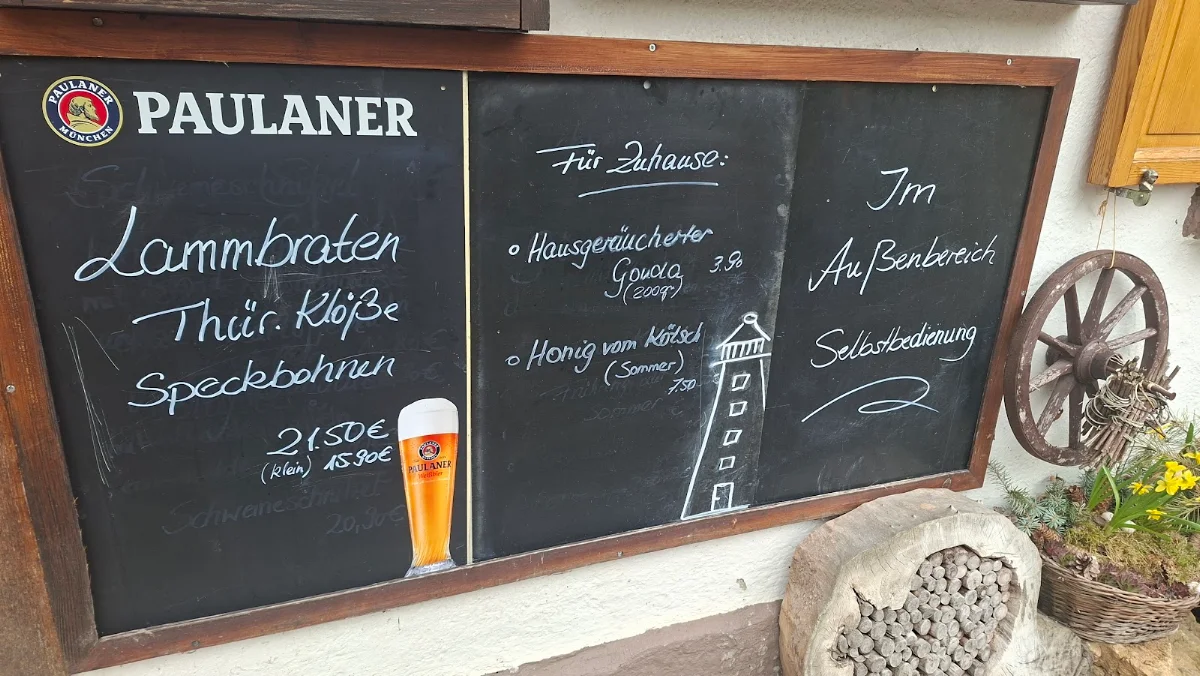 PAULANER
MÜNCHEN
PAULANER
Lammbraten
Thür. Klöße
Speckbohnen
21.50€
(klein) 15.90€
Schweineschnitzel
20,90€
PAULANER
Für Zuhause:
o Hausgeräucherter
Gouda 3.90
(200gr.)
o Honig vom Kötsch
(Sommer)
7.50
Im
Außenbereich
Selbstbedienung